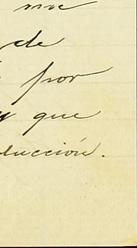 me
de
por
que
ducción.